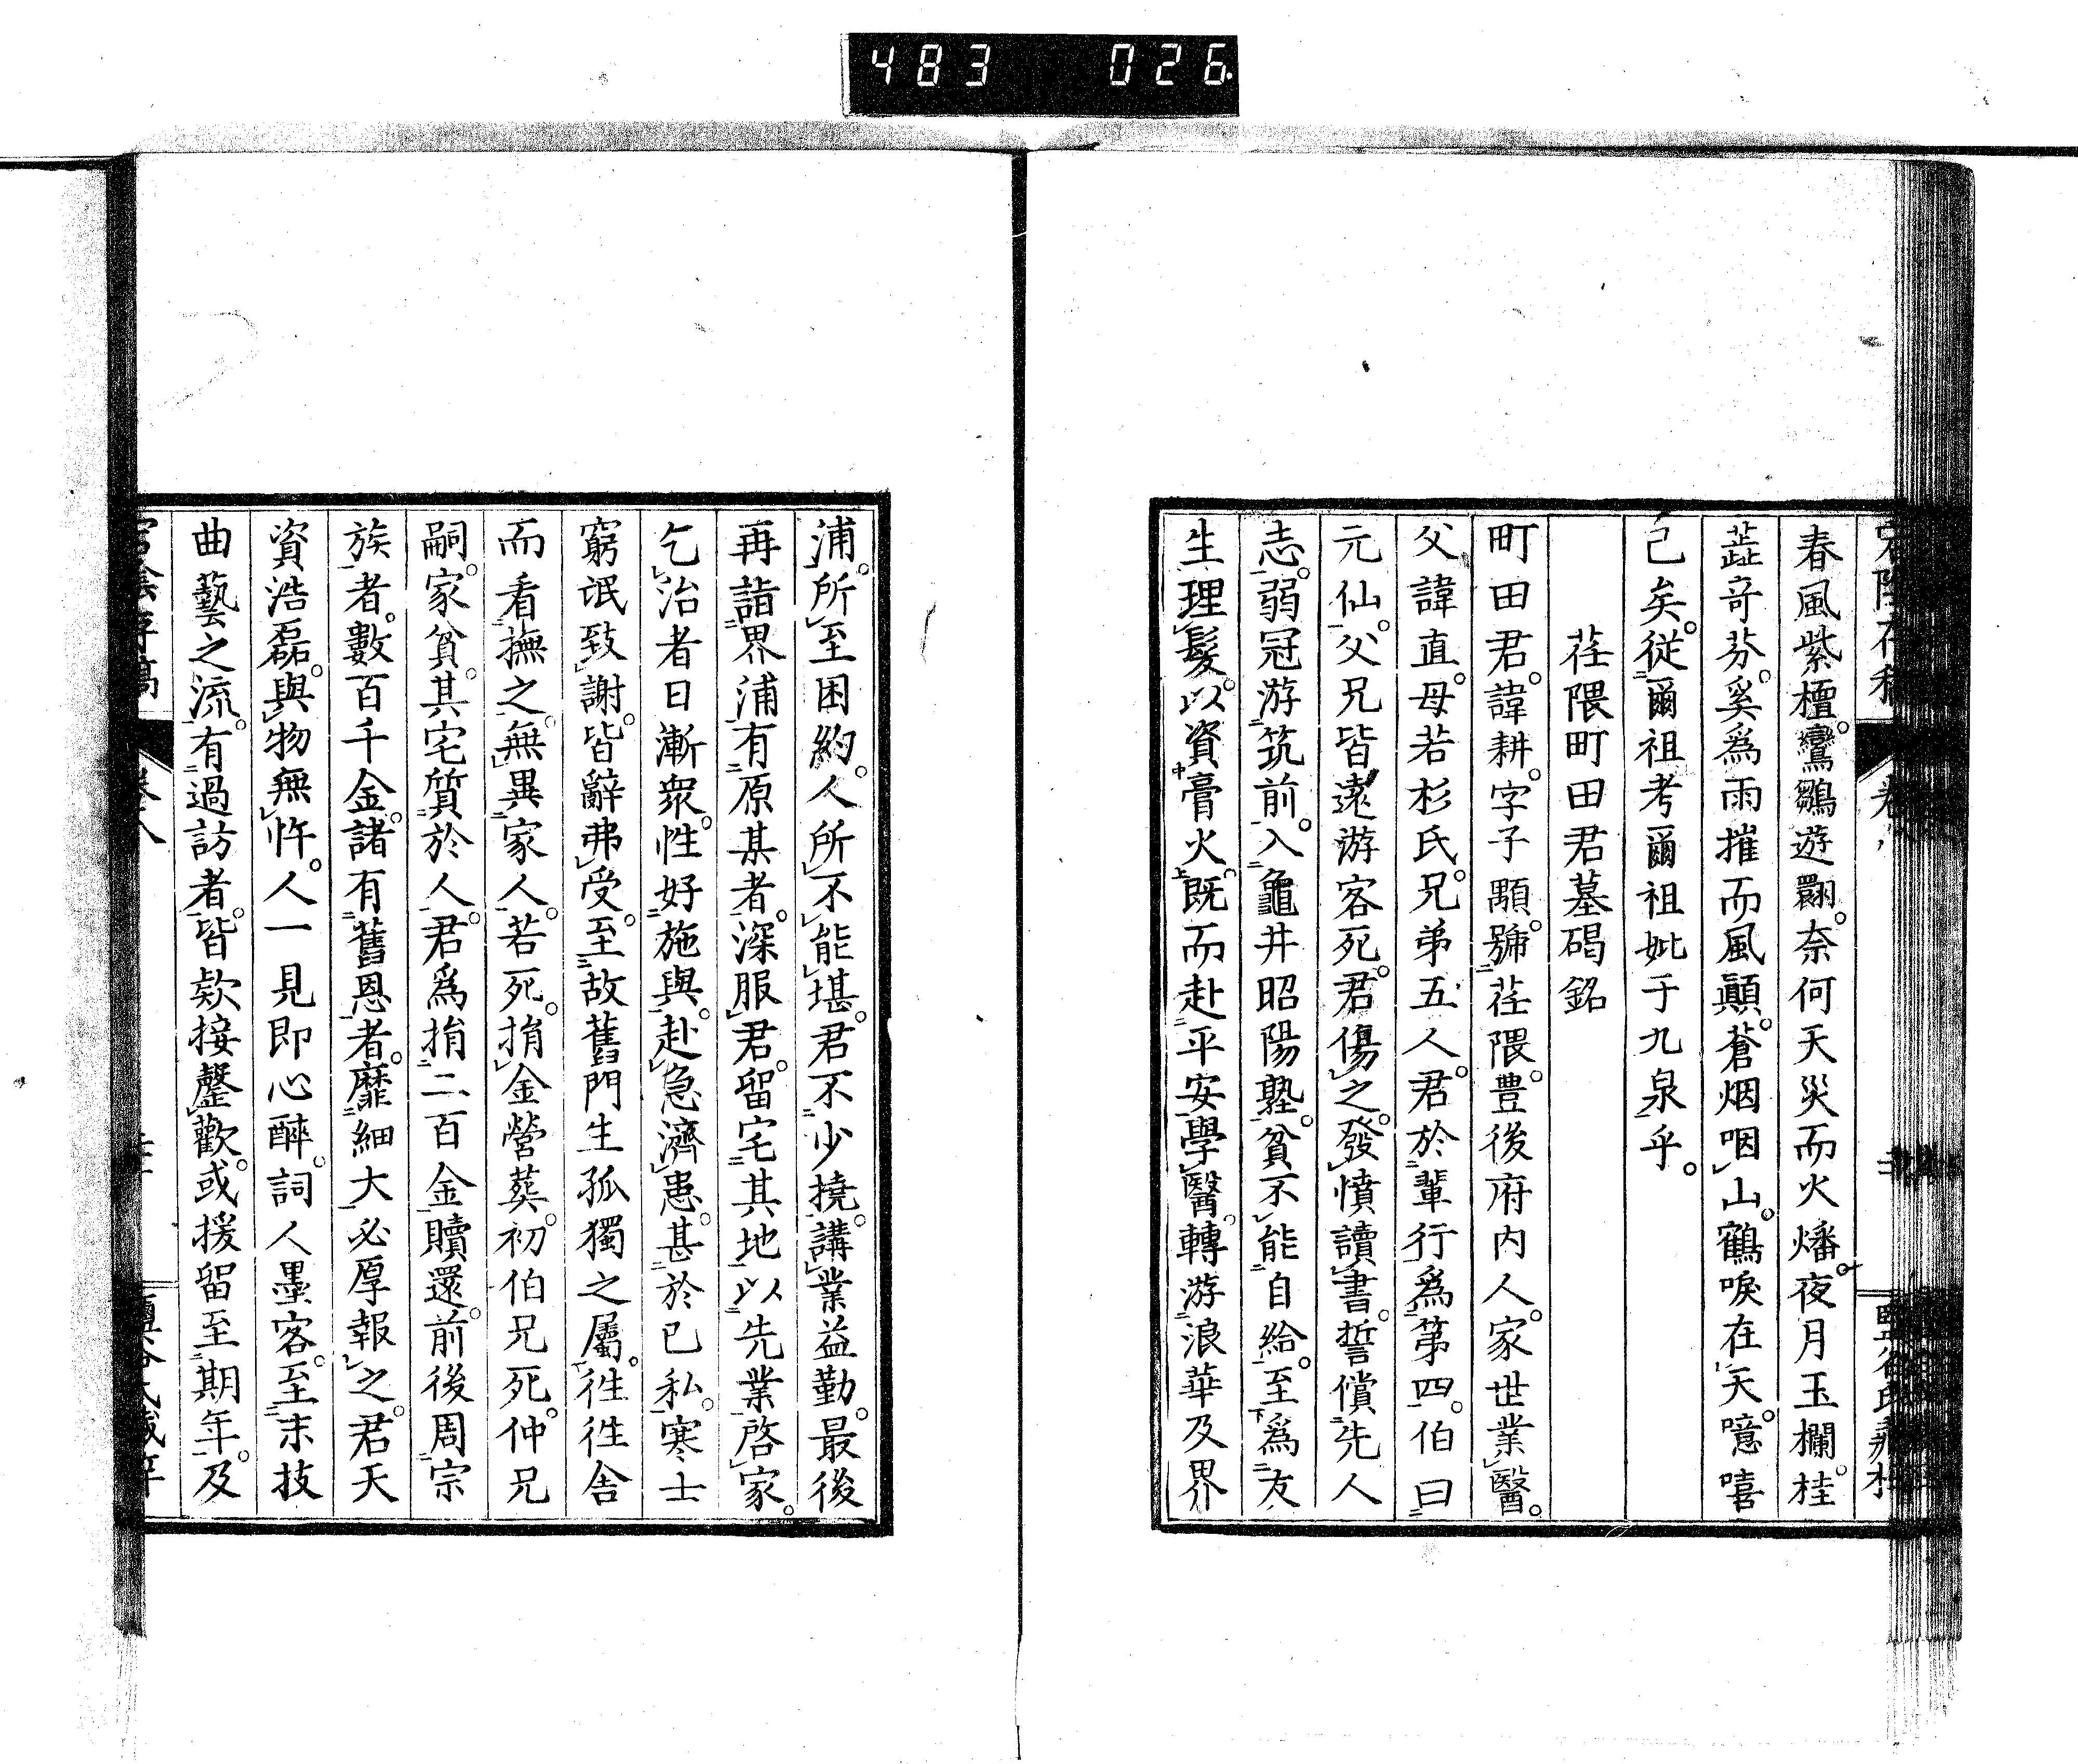 483 026
春風紫檀。鸞鶵遊翺。奈何天災而火燔。夜月玉欄。桂
蕋奇芬。奚為雨摧而風顚。蒼烟咽山。鶴唳在天。噫嘻
已矣。從爾祖考爾祖妣于九泉乎。
荏隈町田君墓碣銘
町田君。諱耕。字子顒。號荏隈。豊後府内人。家世業醫。
父諱直。母若杉氏。兄弟五人。君於輩行爲第四。伯曰
元仙。父兄皆遠游客死。君傷之。發憤讀書。誓償先人
志。弱冠游筑前。入龜井昭陽塾。貧不能自給。至爲友
生理髮。以資膏火。既而赴平安學醫。轉游浪華及界
浦。所至困約。人所不能堪。君不少撓。講業益勤。最後
再詣界浦。有原某者。深服君。留宅其地。以先業啓家。
乞治者日漸衆。性好施與。赴急濟患。甚於已私。寒士
窮氓致謝。皆辭弗受。至故舊門生孤獨之屬。徃徃舍
而看撫之。無異家人。若死。捐金營葬。初伯兄死。仲兄
嗣。家貧。其宅質於人。君爲捐二百金贖還。前後周宗
族者。數百千金。諸有舊恩者。靡細大必厚報之。君天
資浩磊。與物無忤。人一見即心醉。詞人墨客。至末技
曲藝之流。有過訪者。皆欵接罄歡。或援留至期年。及